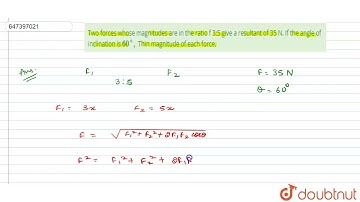 647397021
Two forces whose magnitudes are in the ratio f 3:5 give a resultant of 35 N. If the angle of
inclination is 60°, Thin magnitude of each force.
Ans:
F₁ F₂ F = 35 N
3 : 5 θ = 60°
F₁ = 3x F₂ = 5x
F = √F₁² + F₂² + 2F₁F₂ cosθ
F² = F₁² + F₂² + 2F₁F
doubtnut